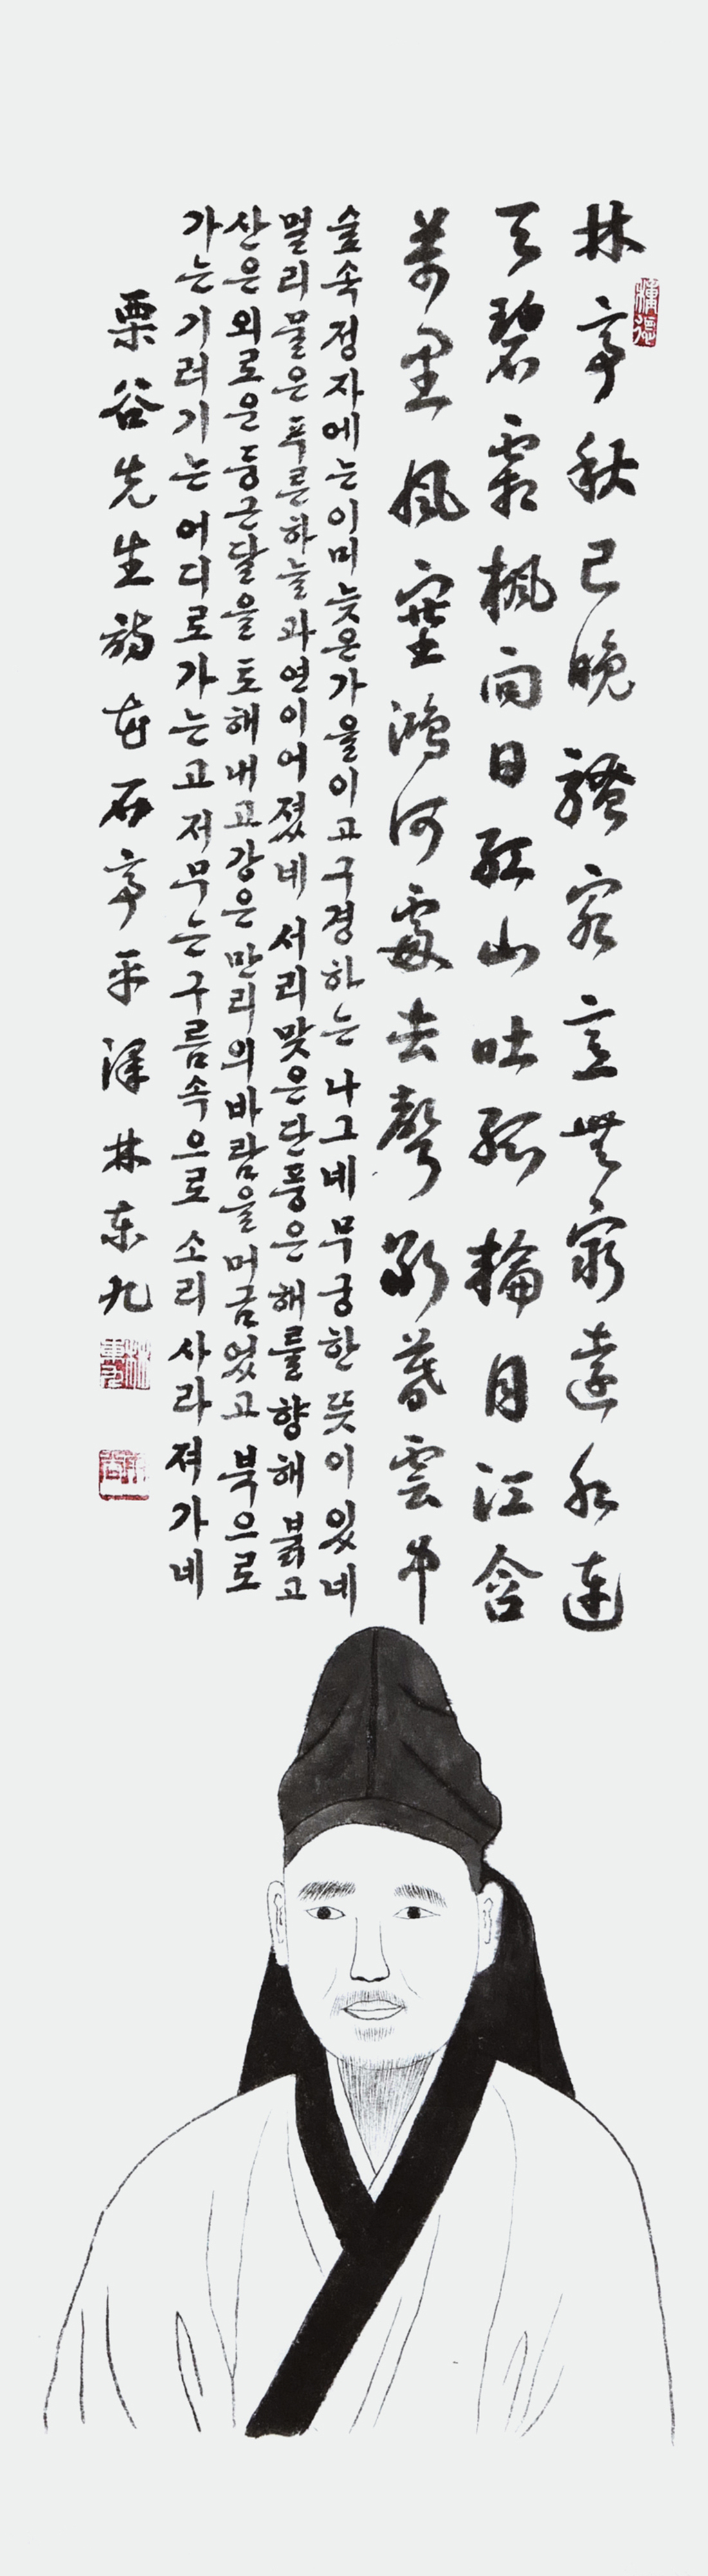 林亭秋已晚騷客意無窮遠水連
天碧霜楓向日紅山吐孤輪月江含
萬里風塞鴻何處去聲斷暮雲中
숲속정자에는이미늦은가을이고구경하는 나그네무궁한 뜻이있네
멀리물은 푸른하늘과연이어졌네 서리맞은단풍은해를향해붉고
산은외로운둥근달을 토해내고강은만리의바람을머금었고 북으로
가는기러기는 어디로가는고 저무는구름속으로 소리사라져가네
栗谷先生詩花石亭平澤林東九